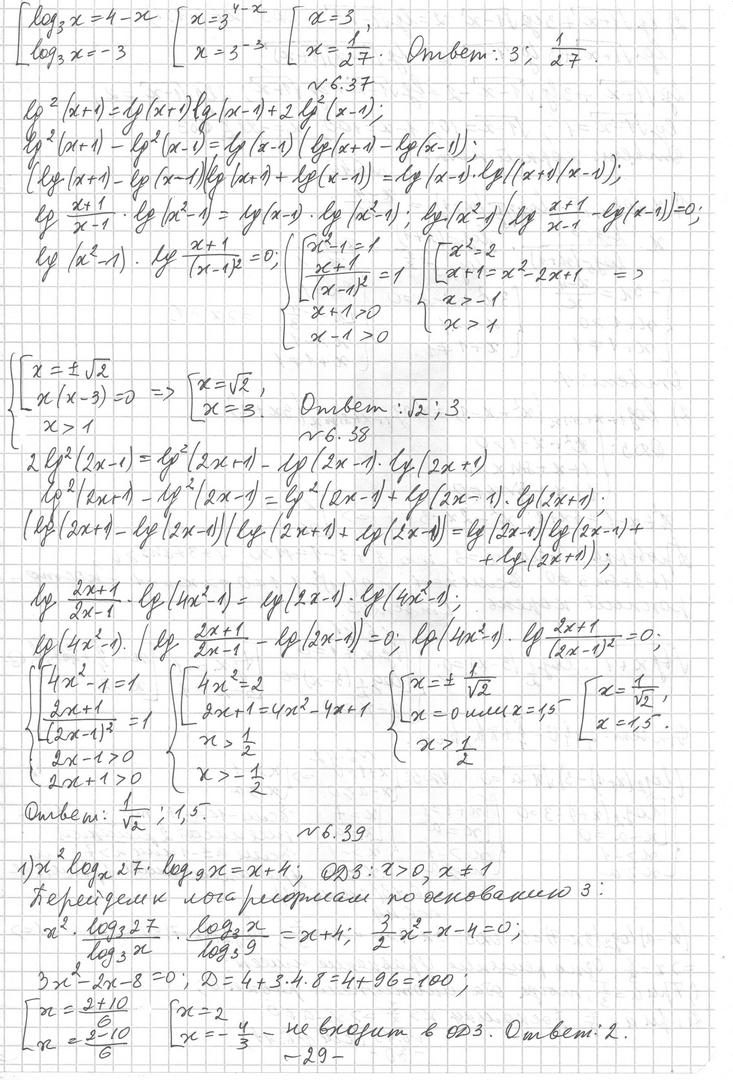 [log₃x=4-x [x=3^(4-x) [x=3,
[log₃x=-3 [x=3⁻³ [x=1/27. Ответ: 3; 1/27.
№6.37
lg²(x+1)=lg(x+1)lg(x-1)+2lg²(x-1);
lg²(x+1)-lg²(x-1)=lg(x-1)(lg(x+1)-lg(x-1));
(lg(x+1)-lg(x-1))(lg(x+1)+lg(x-1))=lg(x-1)·lg((x+1)(x-1));
lg (x+1)/(x-1)·lg(x²-1)=lg(x-1)·lg(x²-1); lg(x²-1)(lg (x+1)/(x-1)-lg(x-1))=0;
lg(x²-1)·lg (x+1)/(x-1)²=0; {[x²-1=1 {[x²=2
(x+1)/(x-1)²=1 x+1=x²-2x+1 =>
x+1>0 x>-1
x-1>0 x>1
{[x=±√2
x(x-3)=0 => [x=√2, x=3. Ответ: √2; 3.
x>1
№6.38
2lg²(2x-1)=lg²(2x+1)-lg(2x-1)·lg(2x+1)
lg²(2x+1)-lg²(2x-1)=lg²(2x-1)+lg(2x-1)·lg(2x+1);
(lg(2x+1)-lg(2x-1))(lg(2x+1)+lg(2x-1))=lg(2x-1)(lg(2x-1)+
+lg(2x+1));
lg (2x+1)/(2x-1)·lg(4x²-1)=lg(2x-1)·lg(4x²-1);
lg(4x²-1)·(lg (2x+1)/(2x-1)-lg(2x-1))=0; lg(4x²-1)·lg (2x+1)/(2x-1)²=0;
{[4x²-1=1 {[4x²=2 {[x=±1/√2 [x=1/√2,
(2x+1)/(2x-1)²=1 2x+1=4x²-4x+1 x=0 или x=1,5 x=1,5.
2x-1>0 x>1/2 x>1/2
2x+1>0 x>-1/2
Ответ: 1/√2; 1,5.
№6.39
1) x² logₓ27·log₉x=x+4; ОДЗ: x>0, x≠1
Перейдем к логарифмам по основанию 3:
x²·log₃27/log₃x·log₃x/log₃9=x+4; 3/2x²-x-4=0;
3x²-2x-8=0; D=4+3·4·8=4+96=100;
[x=(2+10)/6 [x=2
[x=(2-10)/6 [x=-4/3 - не входит в ОДЗ. Ответ: 2.
-29-